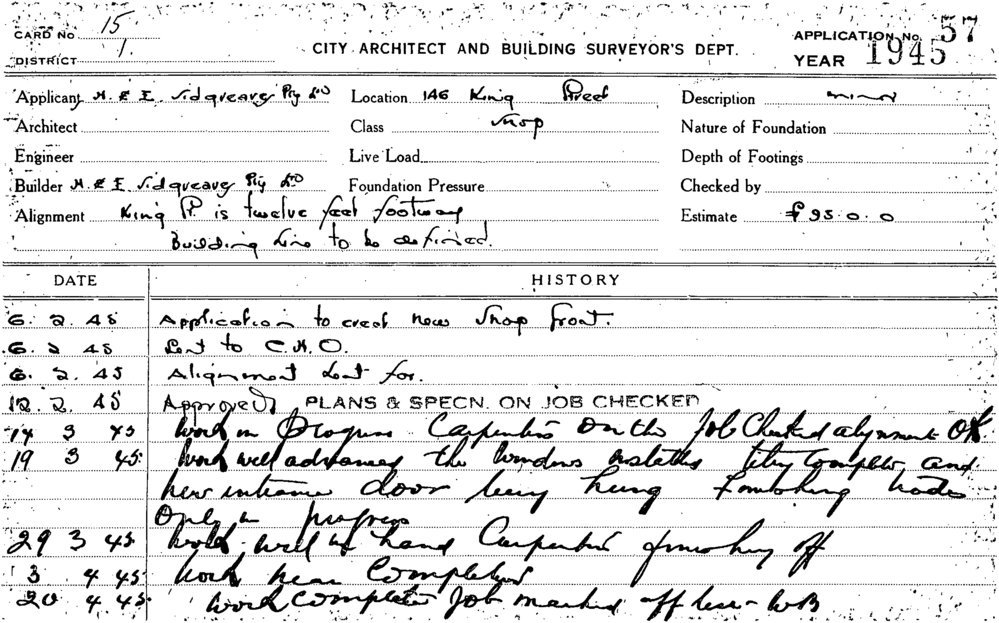 CARD No 15
DISTRICT 1.
CITY ARCHITECT AND BUILDING SURVEYOR'S DEPT.
APPLICATION No. 57
YEAR 1945
Applicant H. & E. Sidgreaves Pty Ltd Location 146 King Street Description minor
Architect Class Shop Nature of Foundation
Engineer Live Load Depth of Footings
Builder H & E Sidgreaves Pty Ltd Foundation Pressure Checked by
Alignment King St. is twelve feet footway Estimate £95.0.0
Building Line to be defined.
DATE HISTORY
6. 2. 45 Application to erect new Shop front.
6. 2 45 Sent to C.H.O.
6. 2. 45 Alignment sent for.
12. 2. 45 Approved PLANS & SPECN. ON JOB CHECKED
14 3 45 Work in progress Carpenters on the Job Checked alignment OK
19 3 45 Work well advanced the windows installed tiling complete and
new entrance door being hung Finishing trades
Only in progress
29 3 45 Work well in hand Carpenters finishing off
3 4 45 Work near Completed
20 4 45 Work complete Job marked off here - WB